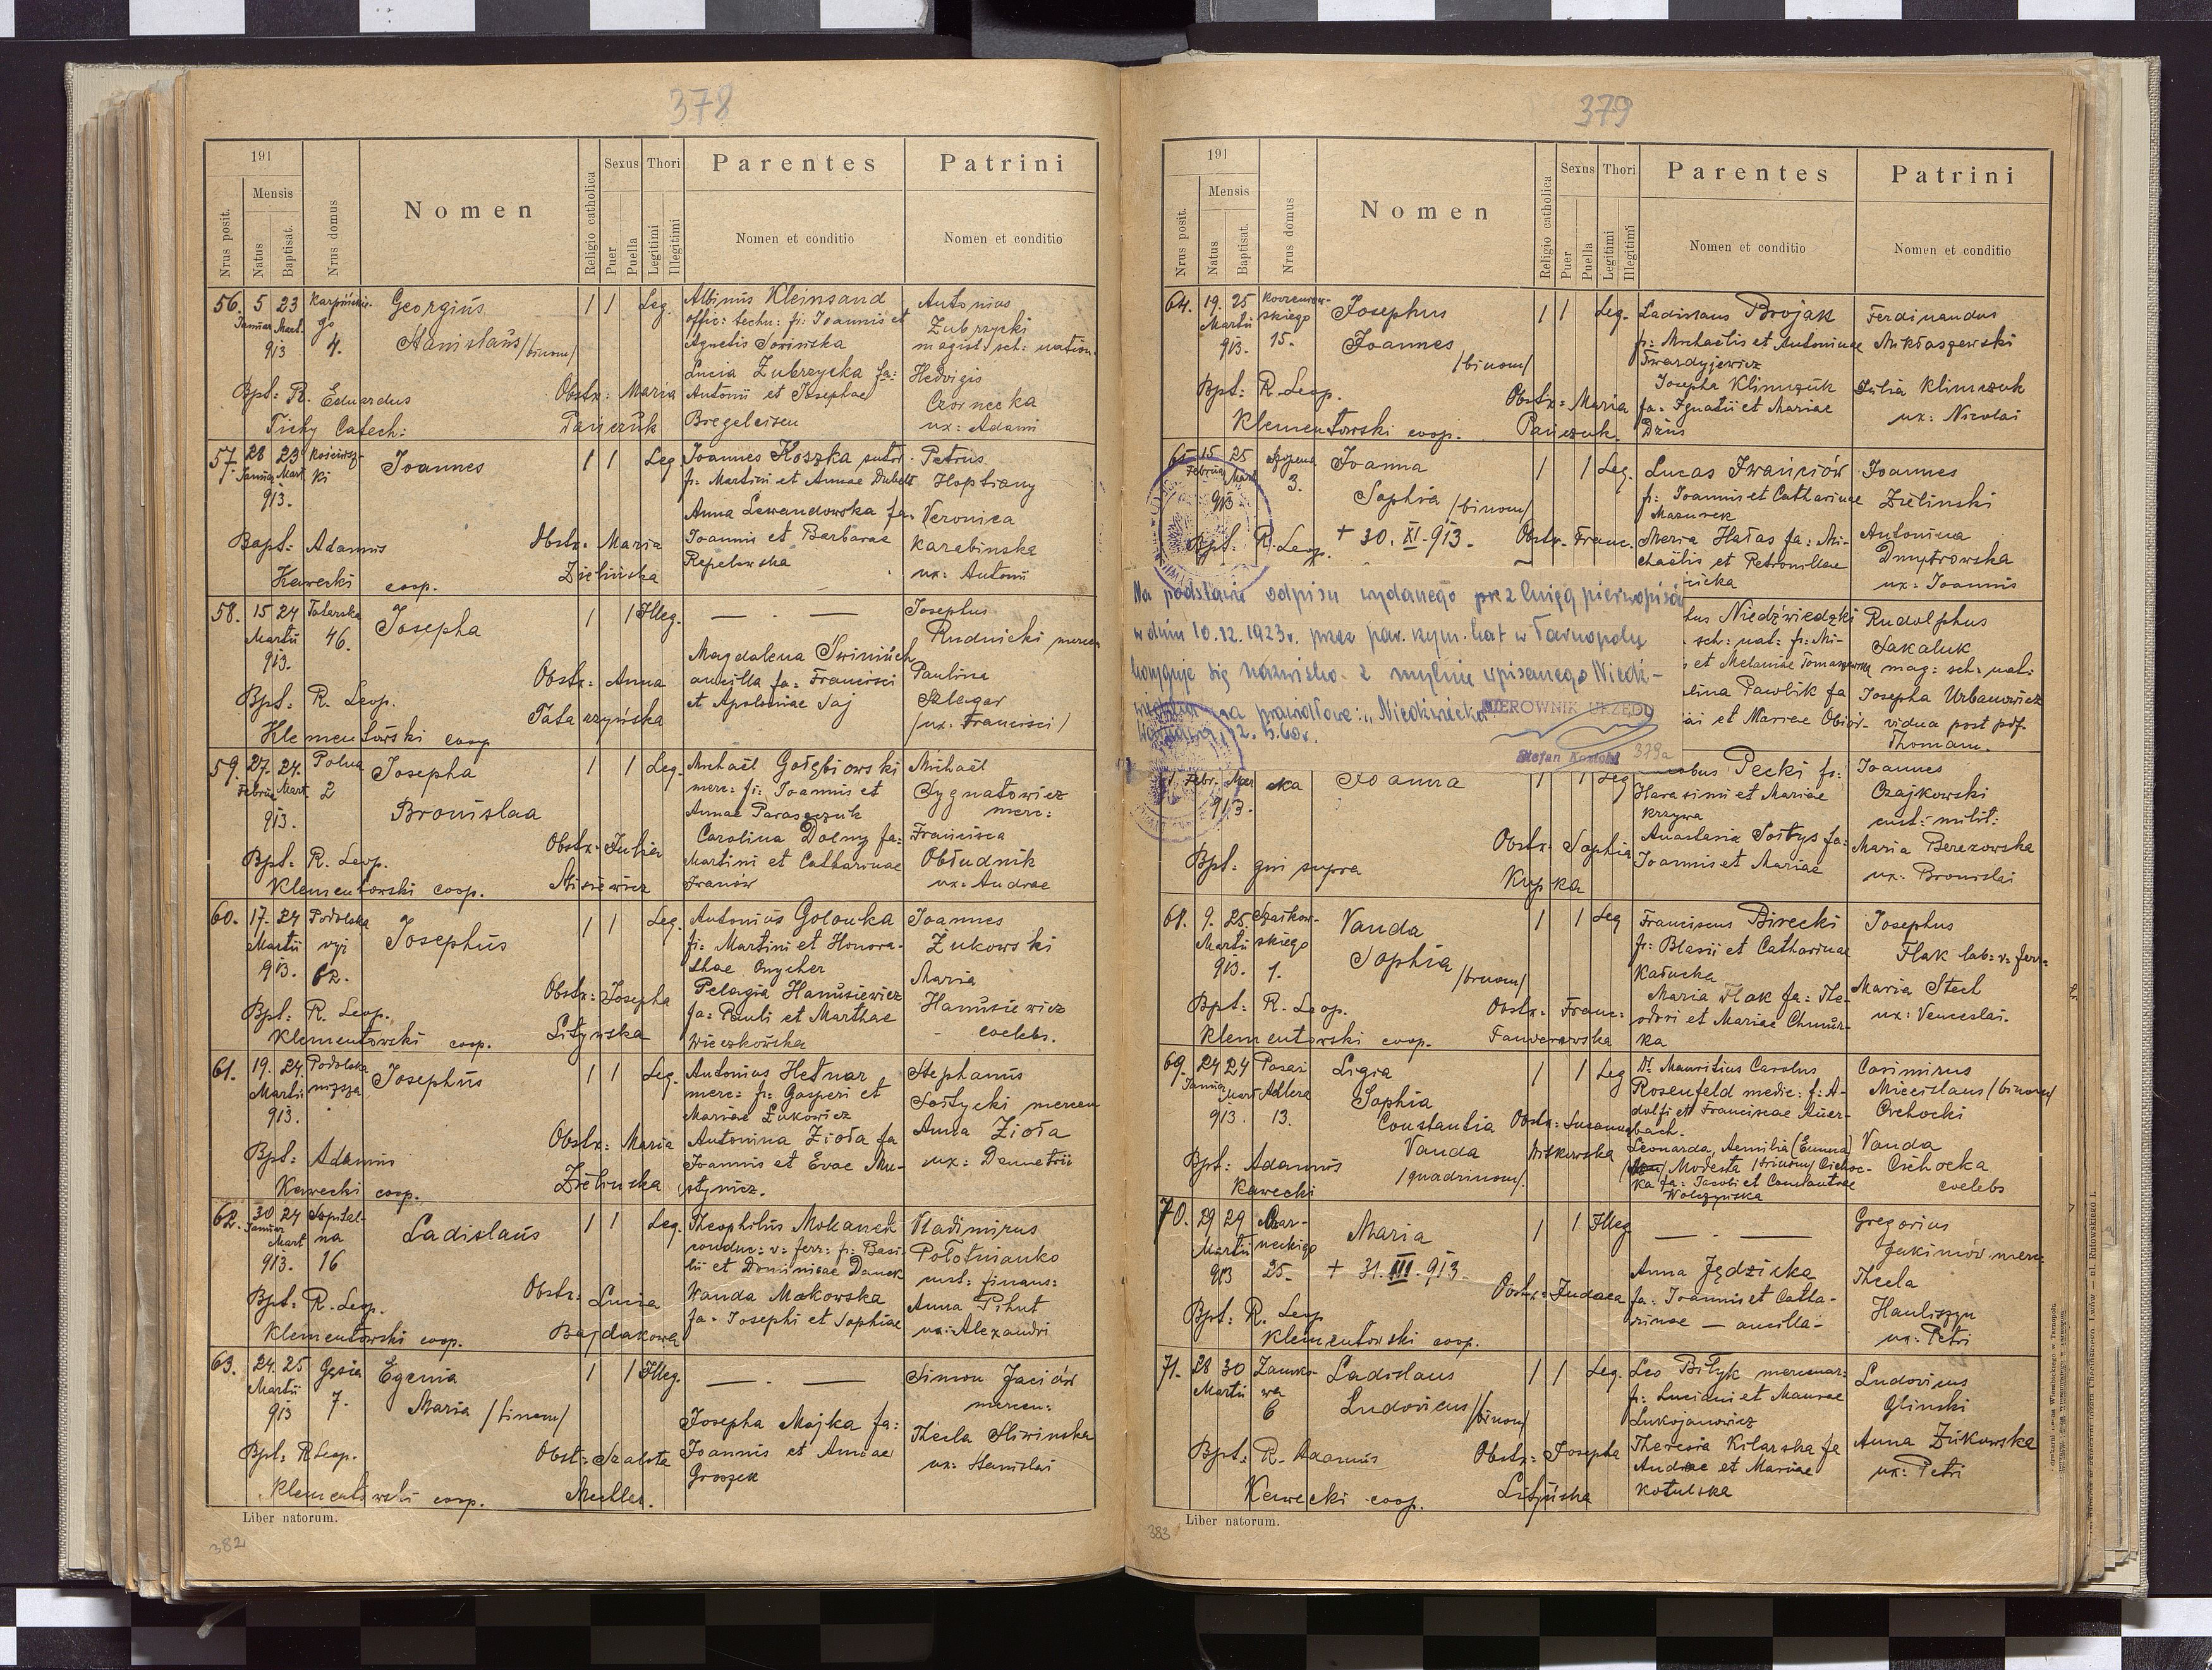 378
191
Mensis
Nrus posit.
Natus
Baptisat.
Nrus domus
Nomen
Religio catholica
Sexus
Puer
Puella
Thori
Legitimi
Illegitimi
Parentes
Nomen et conditio
Patrini
Nomen et conditio
56. 5 23 Karpińskie- Georgius 1 1 Leg. Albinus Kleinsand Antonius
Januar Mart. go Stanislaus /binom/ offic: techn: fi: Joannis et Zubrzycki
913 4. Agnetis magist: sch: nation.
Lucia Zubrzycka fa: Hedvigis
Bpt: R. Eduardus Obstx: Maria Antonii et Josephae Czornecka
Tichy Catech: Pańczuk Bregeleisen ux: Adami
57. 28 23 Joannes 1 1 Leg Joannes Koszka sutor Petrus
Janua Mart ki fi: Martini et Annae Hoptiany
913. Anna Lewandowska fa. Veronica
Bapt: Adamus Obstx: Maria Joannis et Barbarae Karabinska
Kawecki coop. Zielińska Repelowska ux: Antonii
58. 15 24 Tatarska Josepha 1 1 Illeg. — . — Josephus
Martii 46. Rudnicki mercen
913. Magdalena Paulina
Obstx: Anna ancilla fa: Francisci Szlegar
Bpt: R. Leop. Tatarzyńska et Apoloniae Saj /ux: Francisci/
Klementowski coop
59. 27. 24. Polna Josepha 1 1 Leg. Michaël Gołębiowski Michaël
Februa Mart 2 Bronislaa merc: fi: Joannis et Cygnatowicz
913. Annae Parasczuk merc:
Obstx: Julia Carolina Dolny fa: Francisca
Bpt: R. Leop. Martini et Catharinae Obłudnik
Klementowski coop. Franów ux: Andrae
60. 17. 24 Podolska Josephus 1 1 Leg. Antonius Golonka Joannes
Martii vyż fi: Martini et Honora- Żukowski
913. 62. thae Onycher Maria
Obstx: Josepha Pelagia Hanusiewicz Hanusiewicz
Bpt: R. Leop. Litynska fa: Pauli et Marthae coelebs.
Klementowski coop. Wieczkowska
61. 19. 24. Podolska Josephus 1 1 Leg. Antonius Hetnar Stephanus
Martii nizsza merc: fi: Gasperi et Sostycki mercen
913. Mariae Lukowicz Anna Zioła
Obstx: Maria Antonina Zioła fa ux: Demetrii
Bpt: Adamus Zielinska Joannis et Evae Mu-
Kawecki coop. stynicz.
62. 30 24 Szpital- Ladislaus 1 1 Leg. Theophilus Mokanek Vladimirus
Januar Mart na conduc: v: ferr: fi: Basi- Połotnianko
913. 16 lii et Dominicae Danek cust: finans:
Obstx: Lucia Wanda Makowska Anna Pihut
Bpt: R. Leop. Bajdakowa fa: Josephi et Sophiae ux: Alexandri
Klementowski coop.
63. 24. 25 Gęsia Egenia 1 1 Illeg. — . — Simon Jaciów
Martii 7. Maria /binom/ mercen:
913 Josepha Majka fa: Thecla Sliwinska
Bpt: R Leop. Obst: Szalota Joannis et Annae ux: Stanislai
Klementowski coop. Mechler. Groszek
Liber natorum.
382
379
191
Mensis
Nrus posit.
Natus
Baptisat.
Nrus domus
Nomen
Religio catholica
Sexus
Puer
Puella
Thori
Legitimi
Illegitimi
Parentes
Nomen et conditio
Patrini
Nomen et conditio
64. 19. 25 Korzeniow- Josephus 1 1 Leg. Ladislaus Brojak Ferdinandus
Martii skiego Joannes fi: Michaëlis et Antoninae Mikłaszewski
913. 15. /binom/ Twardyjewicz
Bpt: R. Leop. Obstx: Maria Josepha Klimczuk Julia Klimczuk
Klementowski coop. Pańczuk. fa: Ignatii et Mariae ux: Nicolai
Dzius
65 15 25 Szopena Joanna 1 1 Leg. Lucas Iwańciów Joannes
Februa Mart 3. Sophia /binom/ fi: Joannis et Catharinae Zielinski
913. Mazurek
Bpt: R. Leop. + 30. XI. 913. Obstx: Franc. Maria Hałas fa: Mi- Antonina
chaëlis et Petronillae Dmytrowska
ux: Joannis
Na podstawie odpisu wydanego prze z księgę pierwopisów
w dniu 10.12.1923 r. przez par. rzym. kat w Tarnopolu
koryguje się nazwisko z mylnie wpisanego Niedź-
wiedzki na prawidłowe: "Niedźwiecki"
Warszawa, 2. 5. 60 r.
KIEROWNIK URZĘDU
Stefan
379a
Niedźwiedzki Rudolphus
sch: nat: fi: Mi- Łakaluk
et Melaniae Tomaszewska mag: sch: nat:
lina Pawlik fa Josepha Urbanowicz
ai et Mariae vidua post pdf.
Thomam.
Febr. Mar ska Joanna 1 1 Leg obus Pecki fi: Joannes
913. Harasimi et Mariae Czajkowski
Krzywa cust: milit:
Obstx: Sophia Anastasia Sołtys fa: Maria Berezowska
Bpt: qui supra Kupka Joannis et Mariae ux: Bronislai
68. 9. 25. Szaskow- Vanda 1 1 Leg Franciscus Birecki Josephus
Martii skiego Sophia /binom/ fi: Blasii et Catharinae Flak lab: v: ferr:
913. 1. Kałucka
Bpt: R. Leop. Obstx: Franc: Maria Flak fa: The- Maria Stech
Klementowski coop. odori et Mariae Chmur- ux: Venceslai.
ka
69. 24 24 Pasaż Ligia 1 1 Leg Dr Mauritius Carolus Casimirus
Janua Mart Adlera Sophia Rosenfeld medic: f: A- Miecislaus /binom/
913. 13. Constantia Obstx: Susanna dolfi et Franciscae Auer- Cichocki
bach.
Vanda Witkowska Leonarda, Aemilia (Emma) Vanda
Bpt: Adamus /quadrinom/. Modesta /trinom/ Cichoc- Cichocka
Kawecki ka fa: Jacobi et Constantiae coelebs
Wolczynska
70. 29 29 Czar- Maria 1 1 Illeg — . — Gregorius
Martii neckiego Jakimów merc.
913 25. + 31. III. 913. Anna Jędzicka Thecla
Obstx: Judaea fa: Joannis et Catha- Hauliszyn
Bpt: R. Leop rinae — ancilla - ux: Petri
Klementowski coop.
71. 28 30 Zamko- Ladislaus 1 1 Leg. Leo Biłyk mercenar: Ludovicus
Martii wa Ludovicus /binom/ fi: Luciani et Mauree Glinski
6 Lukojanowicz
Bpt: R. Adamus Obstx: Josepha Theresia Kilarska fa Anna Żukowska
Kawecki coop. Litynska Andrae et Mariae ux: Petri
Kotulska
Liber natorum.
383